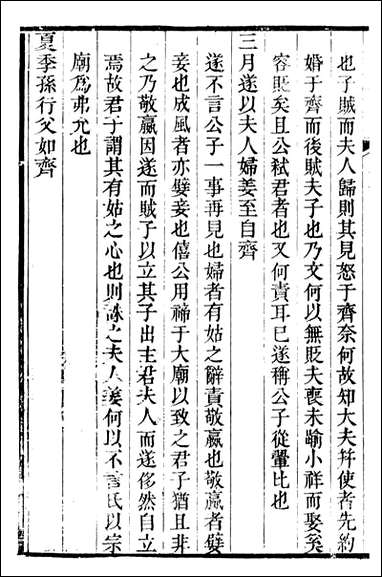 也子賊而夫人歸則其見怒于齊奈何故知大夫幷使者先約
婚于齊而後賊夫子也乃文何以無貶夫喪未踰小祥而娶奚
容貶矣且公弒君者也又何責耳已遂稱公子從翬比也
三月遂以夫人婦姜至自齊
遂不言公子一事再見也婦者有姑之辭責敬嬴也敬嬴者嬖
妾也成風者亦嬖妾也僖公用禘于大廟以致之君子猶且非
之乃敬嬴因遂而賊子以立其子出主君夫人而遂侈然自立
焉故君子謂其有姑之心也則誅之夫人姜何以不言氏以宗
廟爲弗允也
夏季孫行父如齊